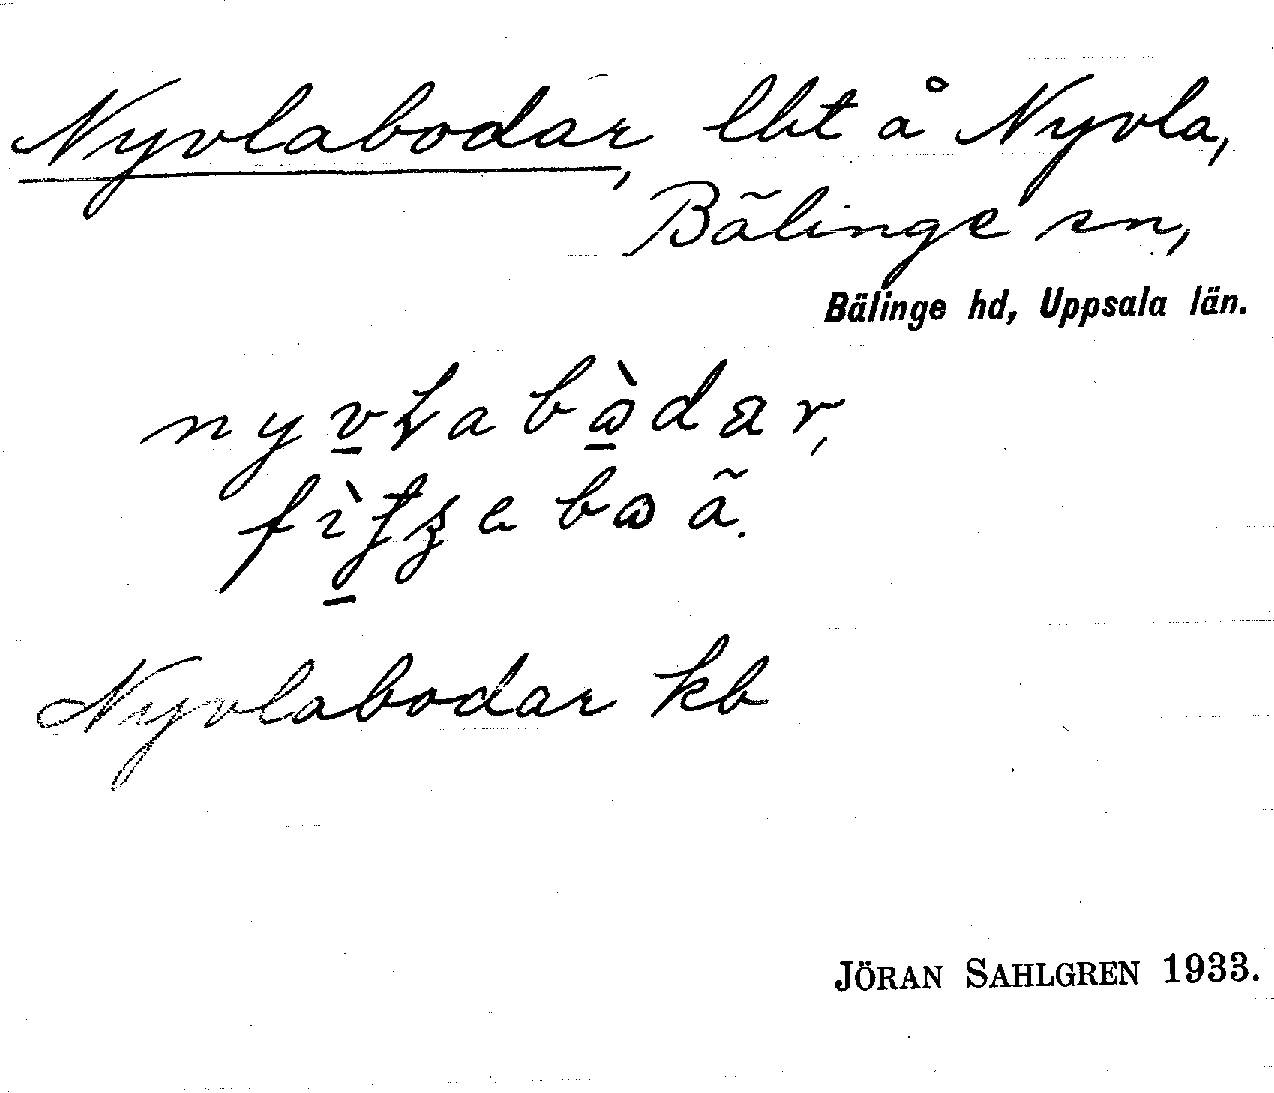 Nyvlabodar, lht å Nyvla,
Bälinge sn,
Bälinge hd, Uppsala län.
Nyvlabodar kb
JÖRAN SAHLGREN 1933.